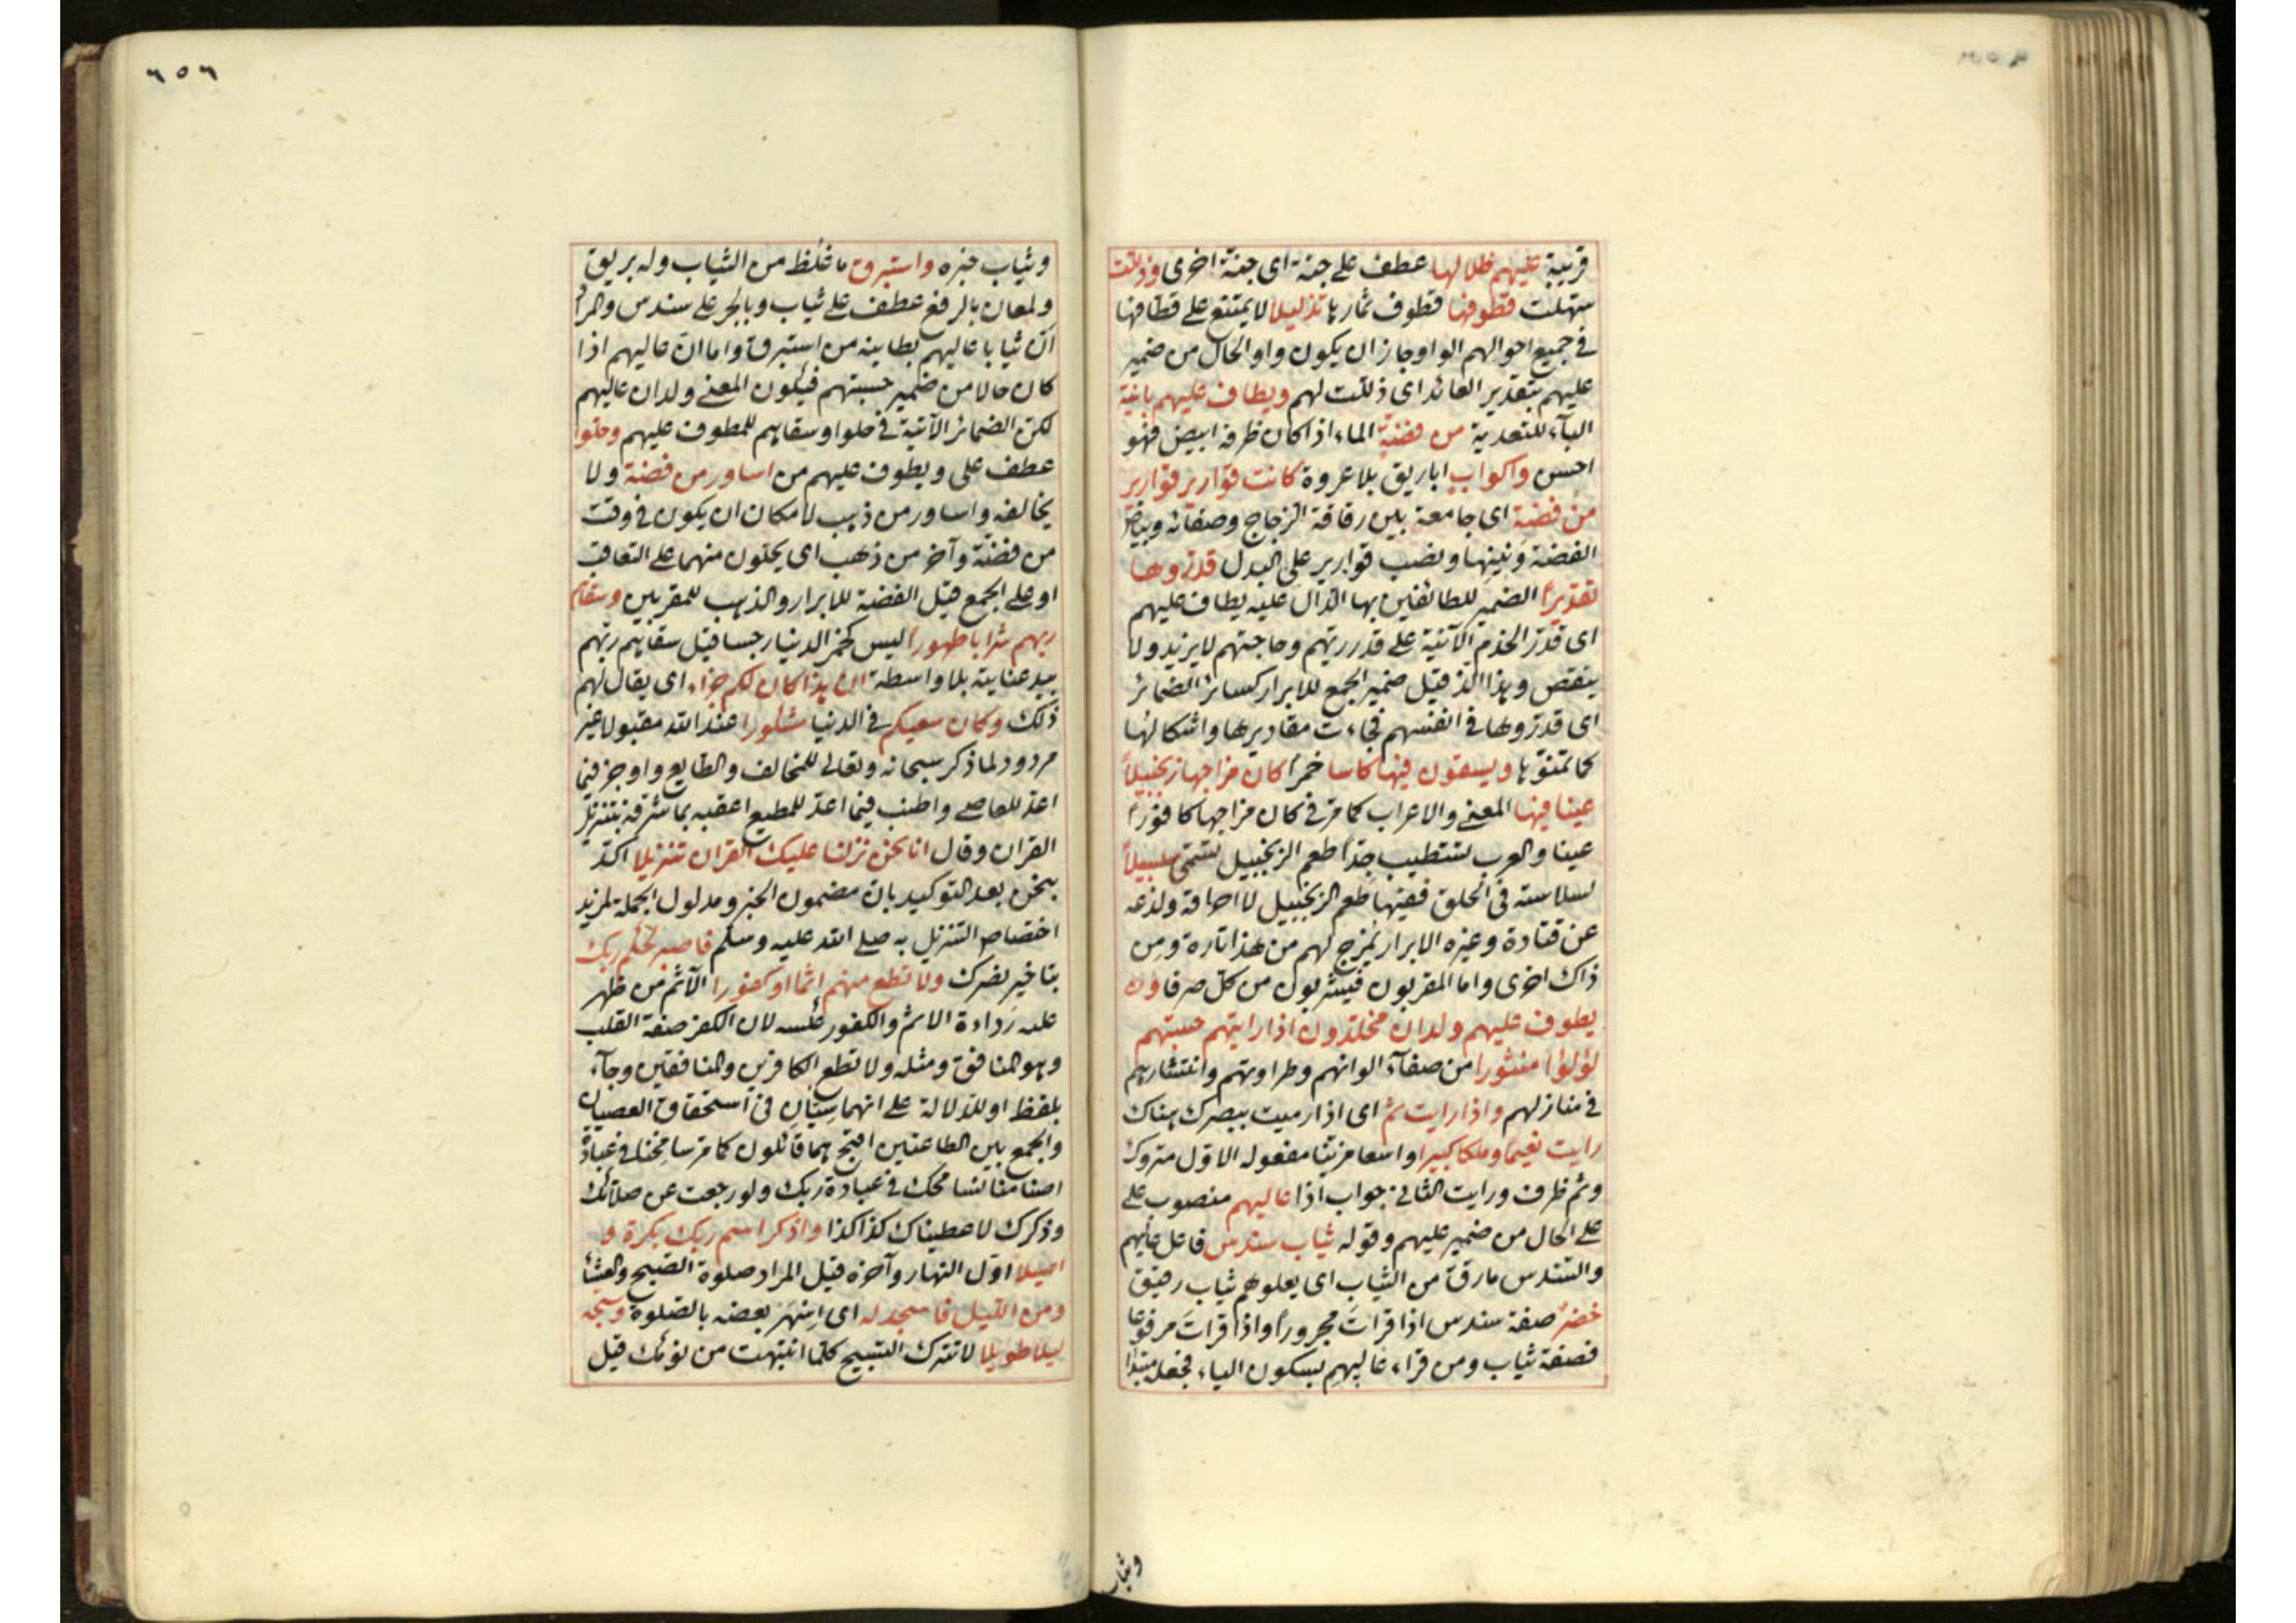 قريبة عليهم ظلالها عطف على جنة اى جنة اخرى وذللت
سهلت قطوفها قطوف ثمارها تذليلا لا يمتنع على قطافها
فى جميع احوالهم الواو جاز ان يكون واو الحال من ضمير
عليهم بتقدير العائد اى ذللت لهم ويطاف عليهم بانية
الباء للتعدية من فضة الماء اذا كان ظرفه ابيض فهو
احسن واكواب اباريق بلا عروة كانت قوارير قوارير
من فضة اى جامعة بين رقاقة الزجاج وصفائه وبياض
الفضة ولينها ونصب قوارير على البدل قدروها
تقديرا الضمير للطائفين بها الدال عليه يطاف عليهم
اى قدر الخدم الآنية على قدر ريهم وحاجتهم لا يزيد ولا
ينقص وهذا الذ قيل ضمير الجمع للابرار كسائر الضمائر
اى قدروها فى انفسهم فجاءت مقاديرها واشكالها
كما تمنوها ويسقون فيها كاسا خمرا كان مزاجها زنجبيلا
عينا فيها المعنى والاعراب كما مر فى كان مزاجها كافورا
عينا والعرب تستطيب جدا طعم الزنجبيل تسمى سلسبيلا
لسلاسته فى الحلق ففيها طعم الزنجبيل لا احراقة ولذعه
عن قتادة وغيره الابرار يمزج لهم من هذا تارة ومن
ذاك اخرى واما المقربون فيشربون من كل صرفا و
يطوف عليهم ولدان مخلدون اذا رايتهم حسبتهم
لؤلؤا منثورا من صفاء الوانهم وطراوتهم وانتشارهم
فى منازلهم واذا رايت ثم اى اذا رميت ببصرك هناك
رايت نعيما وملكا كبيرا واسعا مفعوله الاول متروك
وثم ظرف ورايت الثانى جواب اذا عاليهم منصوب على
على الحال من ضمير عليهم وقوله ثياب سندس فاعل عاليهم
والسندس ما رق من الثياب اى يعلوهم ثياب رقيق
خضر صفة سندس اذا قرات مجرورا واذا قرات مرفوعا
فصفة ثياب ومن قراء عاليهم بسكون الياء فجعل مبتدا
وثياب
٦٥٦
وثياب خبره واستبرق ما غلظ من الثياب وله بريق
ولمعان بالرفع عطف على ثياب وبالجر على سندس والمراد
ان ثيابا عاليهم بطاينه من استبرق واما ان عاليهم اذا
كان حالا من ضمير حسبتهم فيكون المعنى ولدان عاليهم
لكن الضمائر الآتية فى حلوا وسقاهم للمطوف عليهم وحلوا
عطف على ويطوف عليهم من اساور من فضة ولا
يخالفه واساور من ذهب لامكان ان يكون فى وقت
من فضة وآخر من ذهب اى يحلون منهما على التعاقب
او على الجمع قيل الفضة للابرار والذهب للمقربين وسقاهم
ربهم شرابا طهورا ليس كخمر الدنيا رجسا قيل سقاهم ربهم
بيد عناية بلا واسطة ان هذا كان لكم جزاء اى يقال لهم
ذلك وكان سعيكم فى الدنيا مشكورا عند الله مقبولا غير
مردود لما ذكر سبحانه وتعالى للمخالف والطايع واوجز فيما
اعد للعاصى واطنب فيما اعد للمطيع اعقبه بما شرفه بتنزيل
القران وقال انا نحن نزلنا عليك القران تنزيلا اكد
بنحن بعد التوكيد بان مضمون الخبر ومدلول الجملة لمزيد
اختصاص التنزيل به صلى الله عليه وسلم فاصبر لحكم ربك
بتاخير نصرك ولا تطع منهم اثما او كفورا الآثم من ظهر
عليه رداءة الاثم والكفور عكسه لان الكفر صفة القلب
وهو المنافق ومثله ولا تطع الكافرين والمنافقين وجاء
بلفظ او للدلالة على انهما سيان فى استحقاق العصيان
والجمع بين الطاعتين اقبح هما قائلون كما مر سامحنا فى عبادة
اصنامنا نسامحك فى عبادة ربك ولو رجعت عن صلاتك
وذكرك لاعطيناك كذا كذا واذكر اسم ربك بكرة و
اصيلا اول النهار وآخره قيل المراد صلوة الصبح والعشا
ومن الليل فاسجد له اى اسهر بعضه بالصلوة وسبحه
ليلا طويلا لا تترك التسبيح كلما انتبهت من نومك قيل